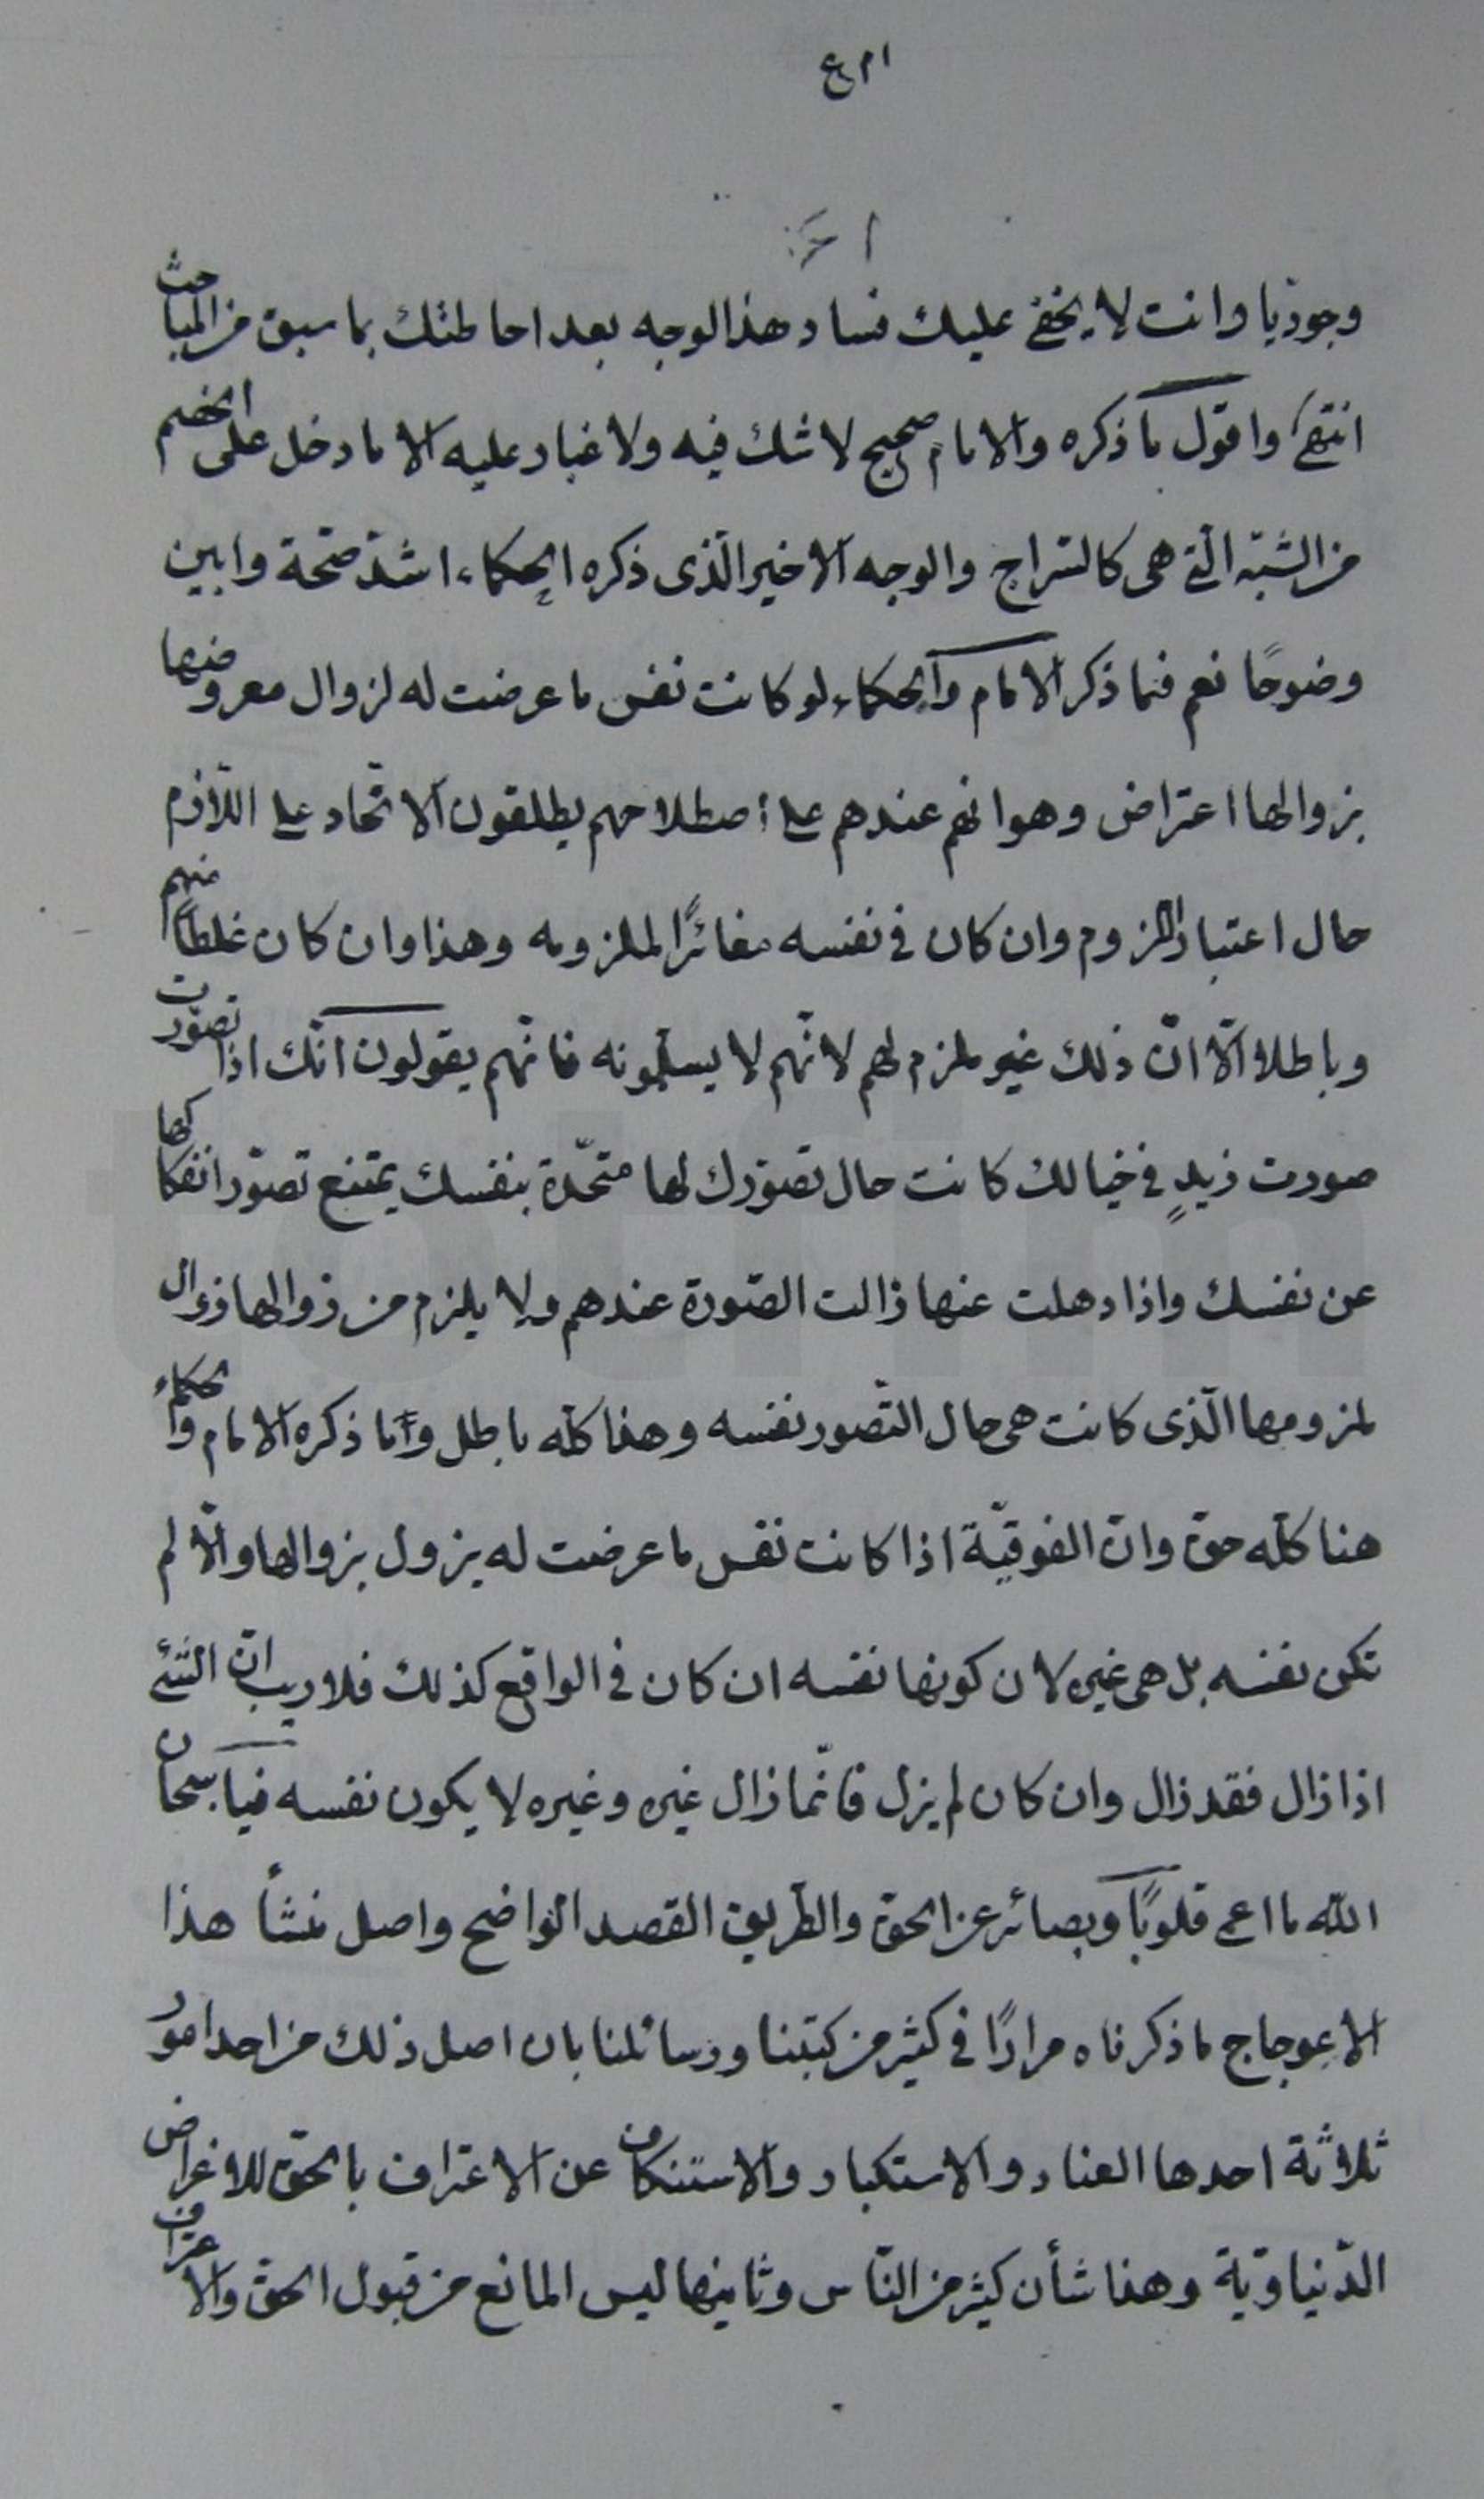 وجوديّا وانت لا يخفى عليك فساد هذا الوجه بعد احاطتك بما سبق من المباحث
انتهى واقول ما ذكره الامام صحيح لا شك فيه ولا غبار عليه الا ما دخل على الخصم
من الشبه الّتى هى كالسّراج والوجه الاخير الّذى ذكره الحكماء اشدّ صحّة وابين
وضوحًا نعم فيما ذكر الامام والحكماء لو كانت نفس ما عرضت له لزوال معروضها
بزوالها اعتراض وهو انهم عندهم على اصطلاحهم يطلقون الاتّحاد على اللّازم
حال اعتبار اللزوم وان كان فى نفسه مغائرًا لملزومه وهذا وان كان غلطاً منهم
وباطلا الّا انّ ذلك غير ملزم لهم لانّهم لا يسلّمونه فانّهم يقولون انّك اذا تصوّرت
صورت زيدٍ فى خيالك كانت حال تصوّرك لها متحّدة بنفسك يمتنع تصوّر انفكاكها
عن نفسك واذا ذهلت عنها زالت الصّورة عندهم ولا يلزم من زوالها زوال
لمزومها الّذى كانت هى حال التّصور نفسه وهذا كلّه باطل وما ذكره الامام والحكماء
هنا كلّه حقّ وانّ الفوقيّة اذا كانت نفس ما عرضت له يزول بزوالها والّا لم
تكن نفسه بل هى غيره لان كونها نفسه ان كان فى الواقع كذلك فلا ريب انّ الشّئ
اذا زال فقد زال وان كان لم يزل فانّما زال غيره وغيره لا يكون نفسه فيا سبحان
اللّه ما اعمى قلوبًا وبصائر عن الحقّ والطّريق القصد الواضح واصل منشأ هذا
الاعوجاج ما ذكرناه مرارًا فى كثير من كتبنا ورسائلنا بان اصل ذلك من احد امور
ثلاثة احدها العناد والاستكبار والاستنكاف عن الاعتراف بالحقّ للاغراض
الدّنياويّة وهذا شأن كثير من النّاس وثانيها ليس المانع من قبول الحقّ والاعتراف